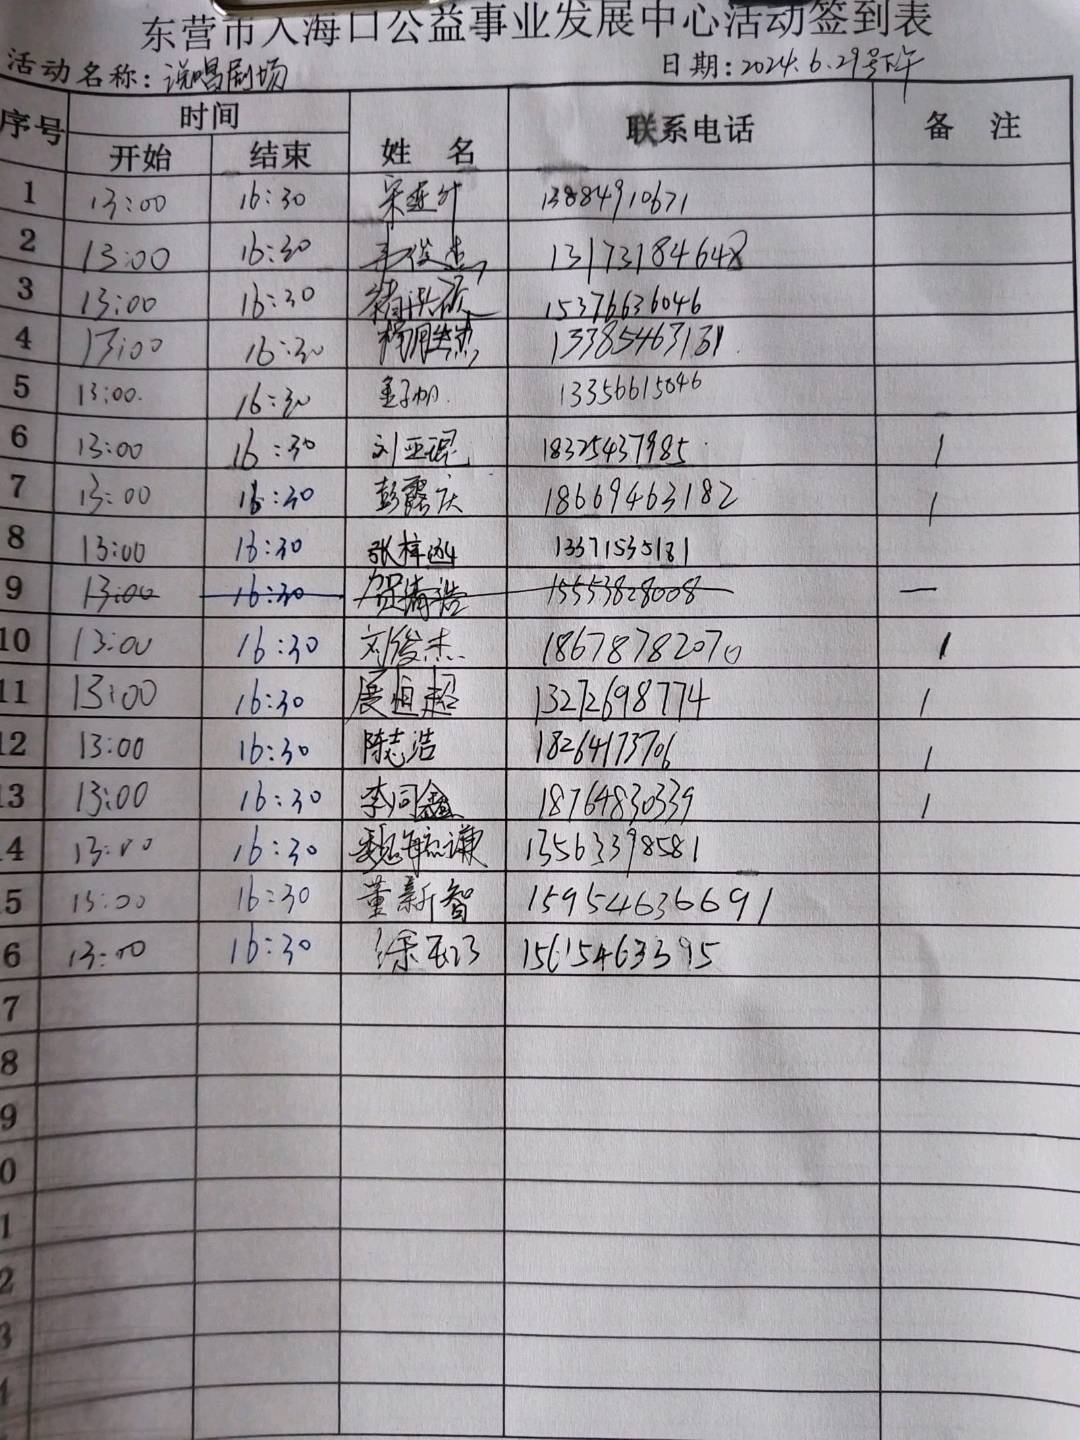 东营市入海口公益事业发展中心活动签到表
活动名称：说唱剧场 日期：2024.6.29号下午
序号 时间 姓 名 联系电话 备 注
开始 结束
1 13:00 16:30 13884910671
2 13:00 16:30 俊杰 13173184648
3 13:00 16:30 15376636046
4 13:00 16:30 13385463131
5 13:00. 16:30 13356615046
6 13:00 16:30 刘亚琨 18325437985 1
7 13:00 16:30 彭露庆 18669463182 1
8 13:00 16:30 张梓 13371535181
9 13:00 16:30 贺清浩 15553828008 —
10 13:00 16:30 刘俊杰 18678782070 1
11 13:00 16:30 展恒超 13272698774 1
12 13:00 16:30 陈志浩 18264173706 1
13 13:00 16:30 李同鑫 18764830339 1
4 13:00 16:30 魏 谦 13563398581
5 13:00 16:30 董新智 15954636691
6 13:00 16:30 徐 15615463395
7
8
9
0
1
2
3